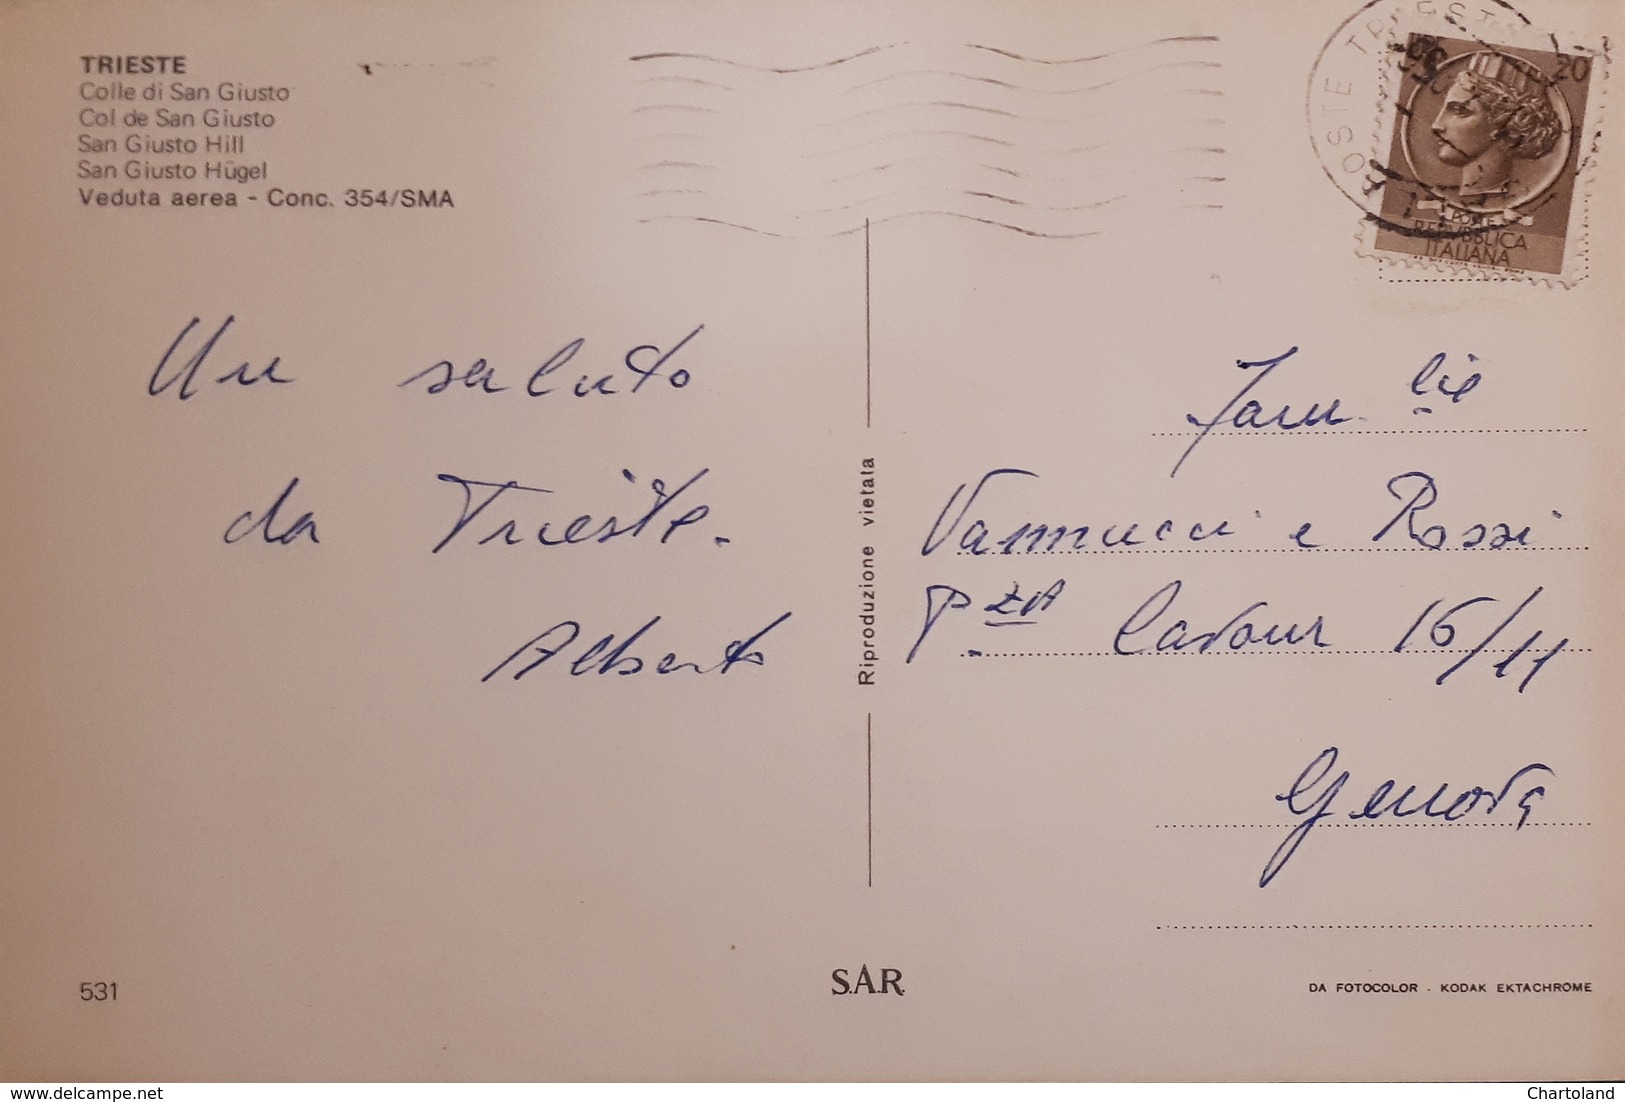 TRIESTE
Colle di San Giusto
Col de San Giusto
San Giusto Hill
San Giusto Hügel
Veduta aerea - Conc. 354/SMA
POSTE TRIESTE
20
POSTE
REPVBBLICA
ITALIANA
Un saluto
da Trieste.
Alberto
Riproduzione vietata
Fam. lie
Vannucci e Rossi
P.zza Cavour 16/11
Genova
531
S.A.R.
DA FOTOCOLOR - KODAK EKTACHROME
delcampe.net
Chartoland